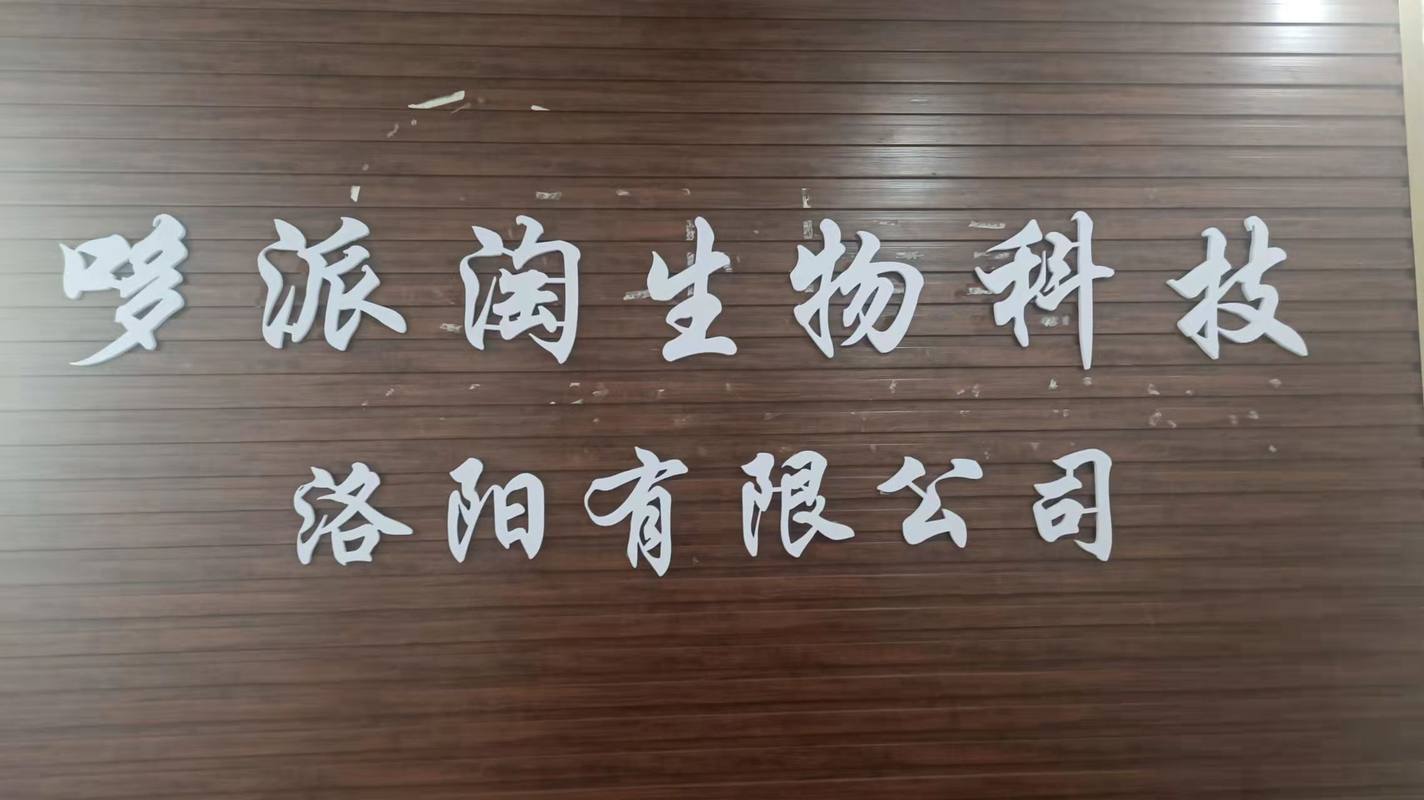 哆派淘生物科技
洛阳有限公司